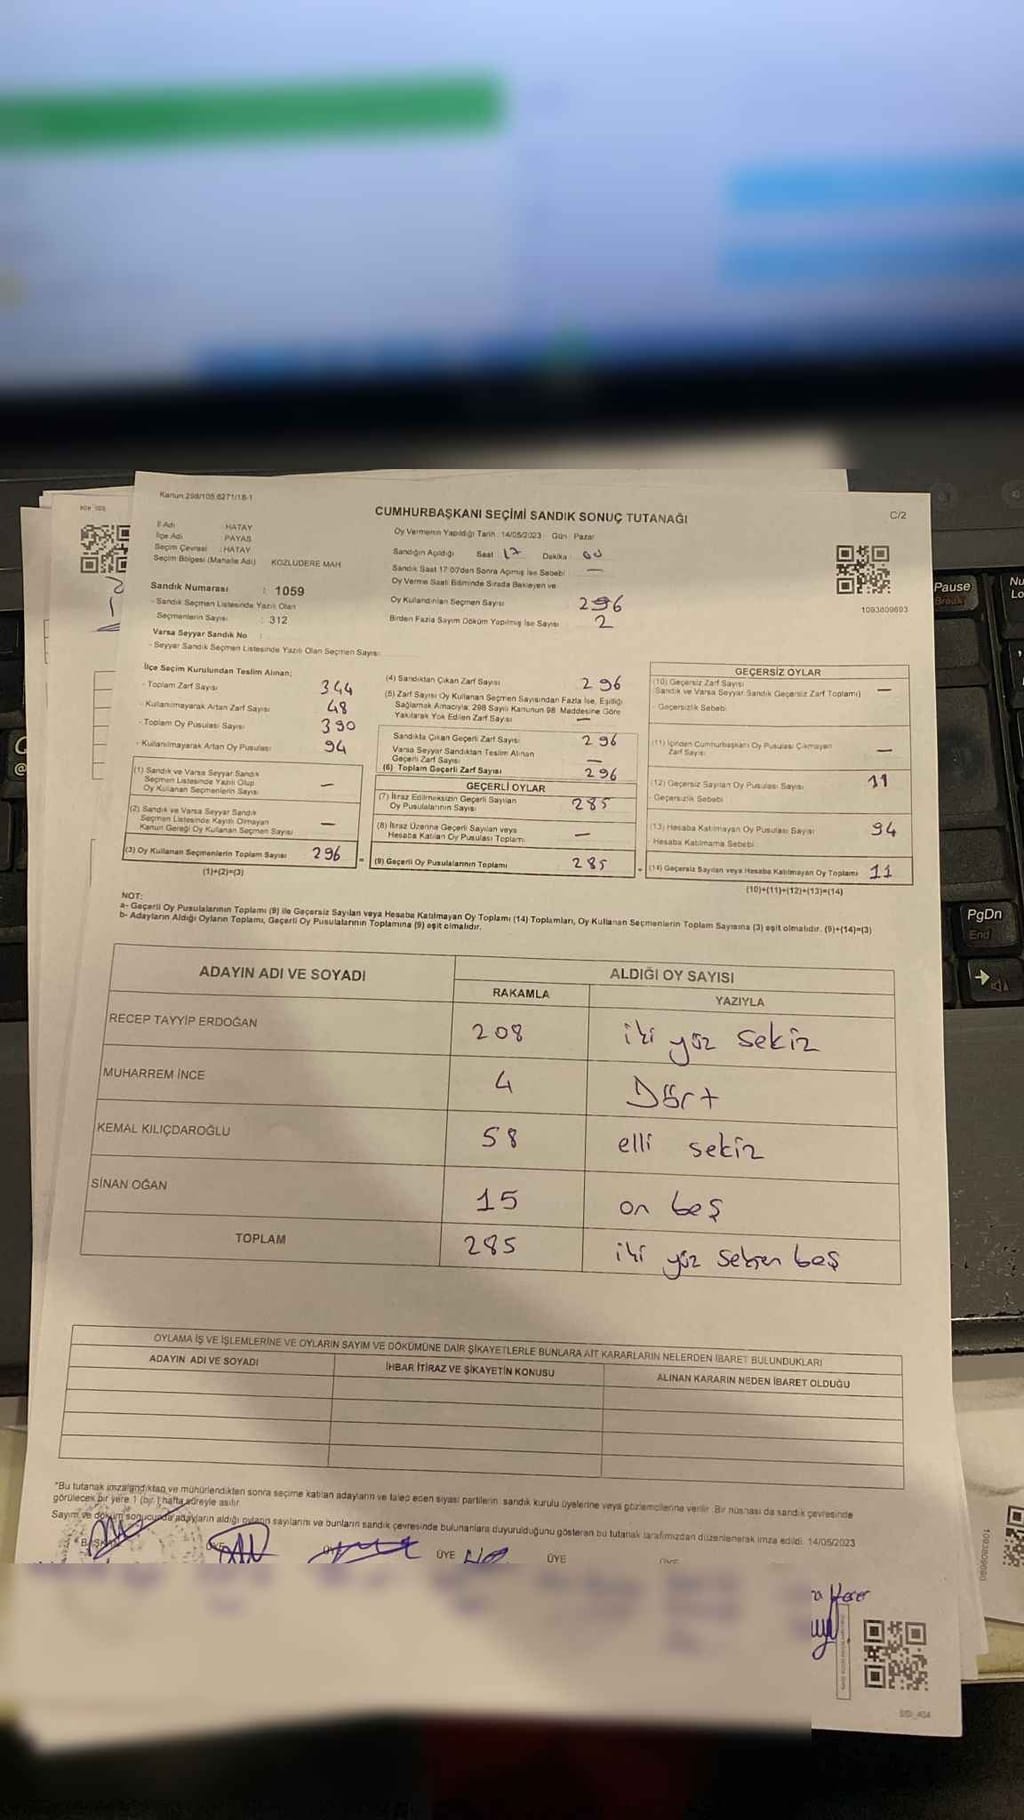 Kanun 298/105 6271/18-1
CUMHURBAŞKANI SEÇİMİ SANDIK SONUÇ TUTANAĞI
C/2
İl Adı : HATAY
İlçe Adı : PAYAS
Seçim Çevresi : HATAY
Seçim Bölgesi (Mahalle Adı) KOZLUDERE MAH
Oy Vermenin Yapıldığı Tarih : 14/05/2023 Gün : Pazar
Sandığın Açıldığı Saat 17 Dakika 00
Sandık Saat 17:00'den Sonra Açılmış İse Sebebi —
Oy Verme Saati Bitiminde Sırada Bekleyen ve
Oy Kullandırılan Seçmen Sayısı 296
Birden Fazla Sayım Döküm Yapılmış İse Sayısı 2
1093809693
Sandık Numarası : 1059
- Sandık Seçmen Listesinde Yazılı Olan
Seçmenlerin Sayısı : 312
Varsa Seyyar Sandık No :
- Seyyar Sandık Seçmen Listesinde Yazılı Olan Seçmen Sayısı:
İlçe Seçim Kurulundan Teslim Alınan;
- Toplam Zarf Sayısı 344
- Kullanılmayarak Artan Zarf Sayısı 48
- Toplam Oy Pusulası Sayısı 390
- Kullanılmayarak Artan Oy Pusulası 94
(1) Sandık ve Varsa Seyyar Sandık
Seçmen Listesinde Yazılı Olup
Oy Kullanan Seçmenlerin Sayısı —
(2) Sandık ve Varsa Seyyar Sandık
Seçmen Listesinde Kayıtlı Olmayan
Kanun Gereği Oy Kullanan Seçmen Sayısı —
(3) Oy Kullanan Seçmenlerin Toplam Sayısı 296
(1)+(2)=(3)
(4) Sandıktan Çıkan Zarf Sayısı 296
(5) Zarf Sayısı Oy Kullanan Seçmen Sayısından Fazla İse, Eşitliği
Sağlamak Amacıyla; 298 Sayılı Kanunun 98. Maddesine Göre
Yakılarak Yok Edilen Zarf Sayısı —
Sandıkta Çıkan Geçerli Zarf Sayısı 296
Varsa Seyyar Sandıktan Teslim Alınan
Geçerli Zarf Sayısı —
(6) Toplam Geçerli Zarf Sayısı 296
GEÇERLİ OYLAR
(7) İtiraz Edilmeksizin Geçerli Sayılan
Oy Pusulalarının Sayısı 285
(8) İtiraz Üzerine Geçerli Sayılan veya
Hesaba Katılan Oy Pusulası Toplamı —
(9) Geçerli Oy Pusulalarının Toplamı 285
GEÇERSİZ OYLAR
(10) Geçersiz Zarf Sayısı
Sandık ve Varsa Seyyar Sandık Geçersiz Zarf Toplamı) —
- Geçersizlik Sebebi:
(11) İçinden Cumhurbaşkanı Oy Pusulası Çıkmayan
Zarf Sayısı —
(12) Geçersiz Sayılan Oy Pusulası Sayısı 11
Geçersizlik Sebebi
(13) Hesaba Katılmayan Oy Pusulası Sayısı 94
Hesaba Katılmama Sebebi
(14) Geçersiz Sayılan veya Hesaba Katılmayan Oy Toplamı 11
(10)+(11)+(12)+(13)=(14)
NOT:
a- Geçerli Oy Pusulalarının Toplamı (9) ile Geçersiz Sayılan veya Hesaba Katılmayan Oy Toplamı (14) Toplamları, Oy Kullanan Seçmenlerin Toplam Sayısına (3) eşit olmalıdır. (9)+(14)=(3)
b- Adayların Aldığı Oyların Toplamı, Geçerli Oy Pusulalarının Toplamına (9) eşit olmalıdır.
ADAYIN ADI VE SOYADI ALDIĞI OY SAYISI
RAKAMLA YAZIYLA
RECEP TAYYİP ERDOĞAN 208 iki yüz sekiz
MUHARREM İNCE 4 Dört
KEMAL KILIÇDAROĞLU 58 elli sekiz
SİNAN OĞAN 15 on beş
TOPLAM 285 iki yüz seksen beş
OYLAMA İŞ VE İŞLEMLERİNE VE OYLARIN SAYIM VE DÖKÜMÜNE DAİR ŞİKAYETLERLE BUNLARA AİT KARARLARIN NELERDEN İBARET BULUNDUKLARI
ADAYIN ADI VE SOYADI İHBAR İTİRAZ VE ŞİKAYETİN KONUSU ALINAN KARARIN NEDEN İBARET OLDUĞU
*Bu tutanak imzalandıktan ve mühürlendikten sonra seçime katılan adayların ve talep eden siyasi partilerin sandık kurulu üyelerine veya gözlemcilerine verilir. Bir nüshası da sandık çevresinde
görülecek bir yere 1 (bir) hafta süreyle asılır.
Sayım ve döküm sonucunda adayların aldığı oyların sayılarını ve bunların sandık çevresinde bulunanlara duyurulduğunu gösteren bu tutanak tarafımızdan düzenlenerek imza edildi. 14/05/2023
BAŞKAN ÜYE ÜYE ÜYE ÜYE ÜYE
Pause
Break
PgDn
End